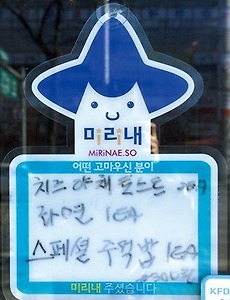 미리내
MiRiNAE.SO
어떤 고마우신 분이
치즈야채토스트
라면 1EA
스페셜 주먹밥 1EA
미리내 주셨습니다
KFD